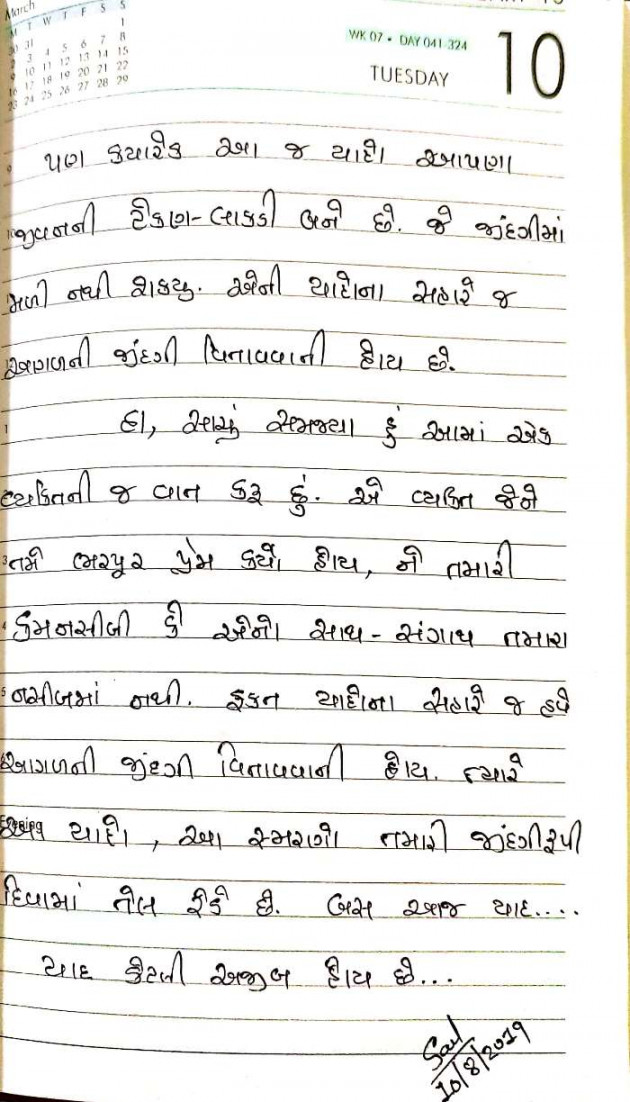 March
M T W T F S S
30 31 1
2 3 4 5 6 7 8
9 10 11 12 13 14 15
16 17 18 19 20 21 22
23 24 25 26 27 28 29
WK 07 • DAY 041-324
TUESDAY
10
પણ કયારેક આ જ યાદો આપણા
જીવનની ટેકણ-લાકડી બને છે. જે જીંદગીમાં
મળી નથી શકયુ. એની યાદોના સહારે જ
આગળની જીંદગી વિતાવવાની હોય છે.
હા, સાચું સમજ્યા હું આમાં એક
વ્યકિતની જ વાત કરૂ છું. એ વ્યકિત જેને
તમે ભરપૂર પ્રેમ કર્યો હોય, ને તમારી
કમનસીબી કે એનો સાથ-સંગાથ તમારા
નસીબમાં નથી. ફકત યાદોના સહારે જ હવે
આગળની જીંદગી વિતાવવાની હોય. ત્યારે
યાદો, આ સ્મરણો તમારી જીંદગીરૂપી
દિવામાં તેલ રેડે છે. બસ આજ યાદ....
યાદ કેટલી અજીબ હોય છે...
10/8/2019